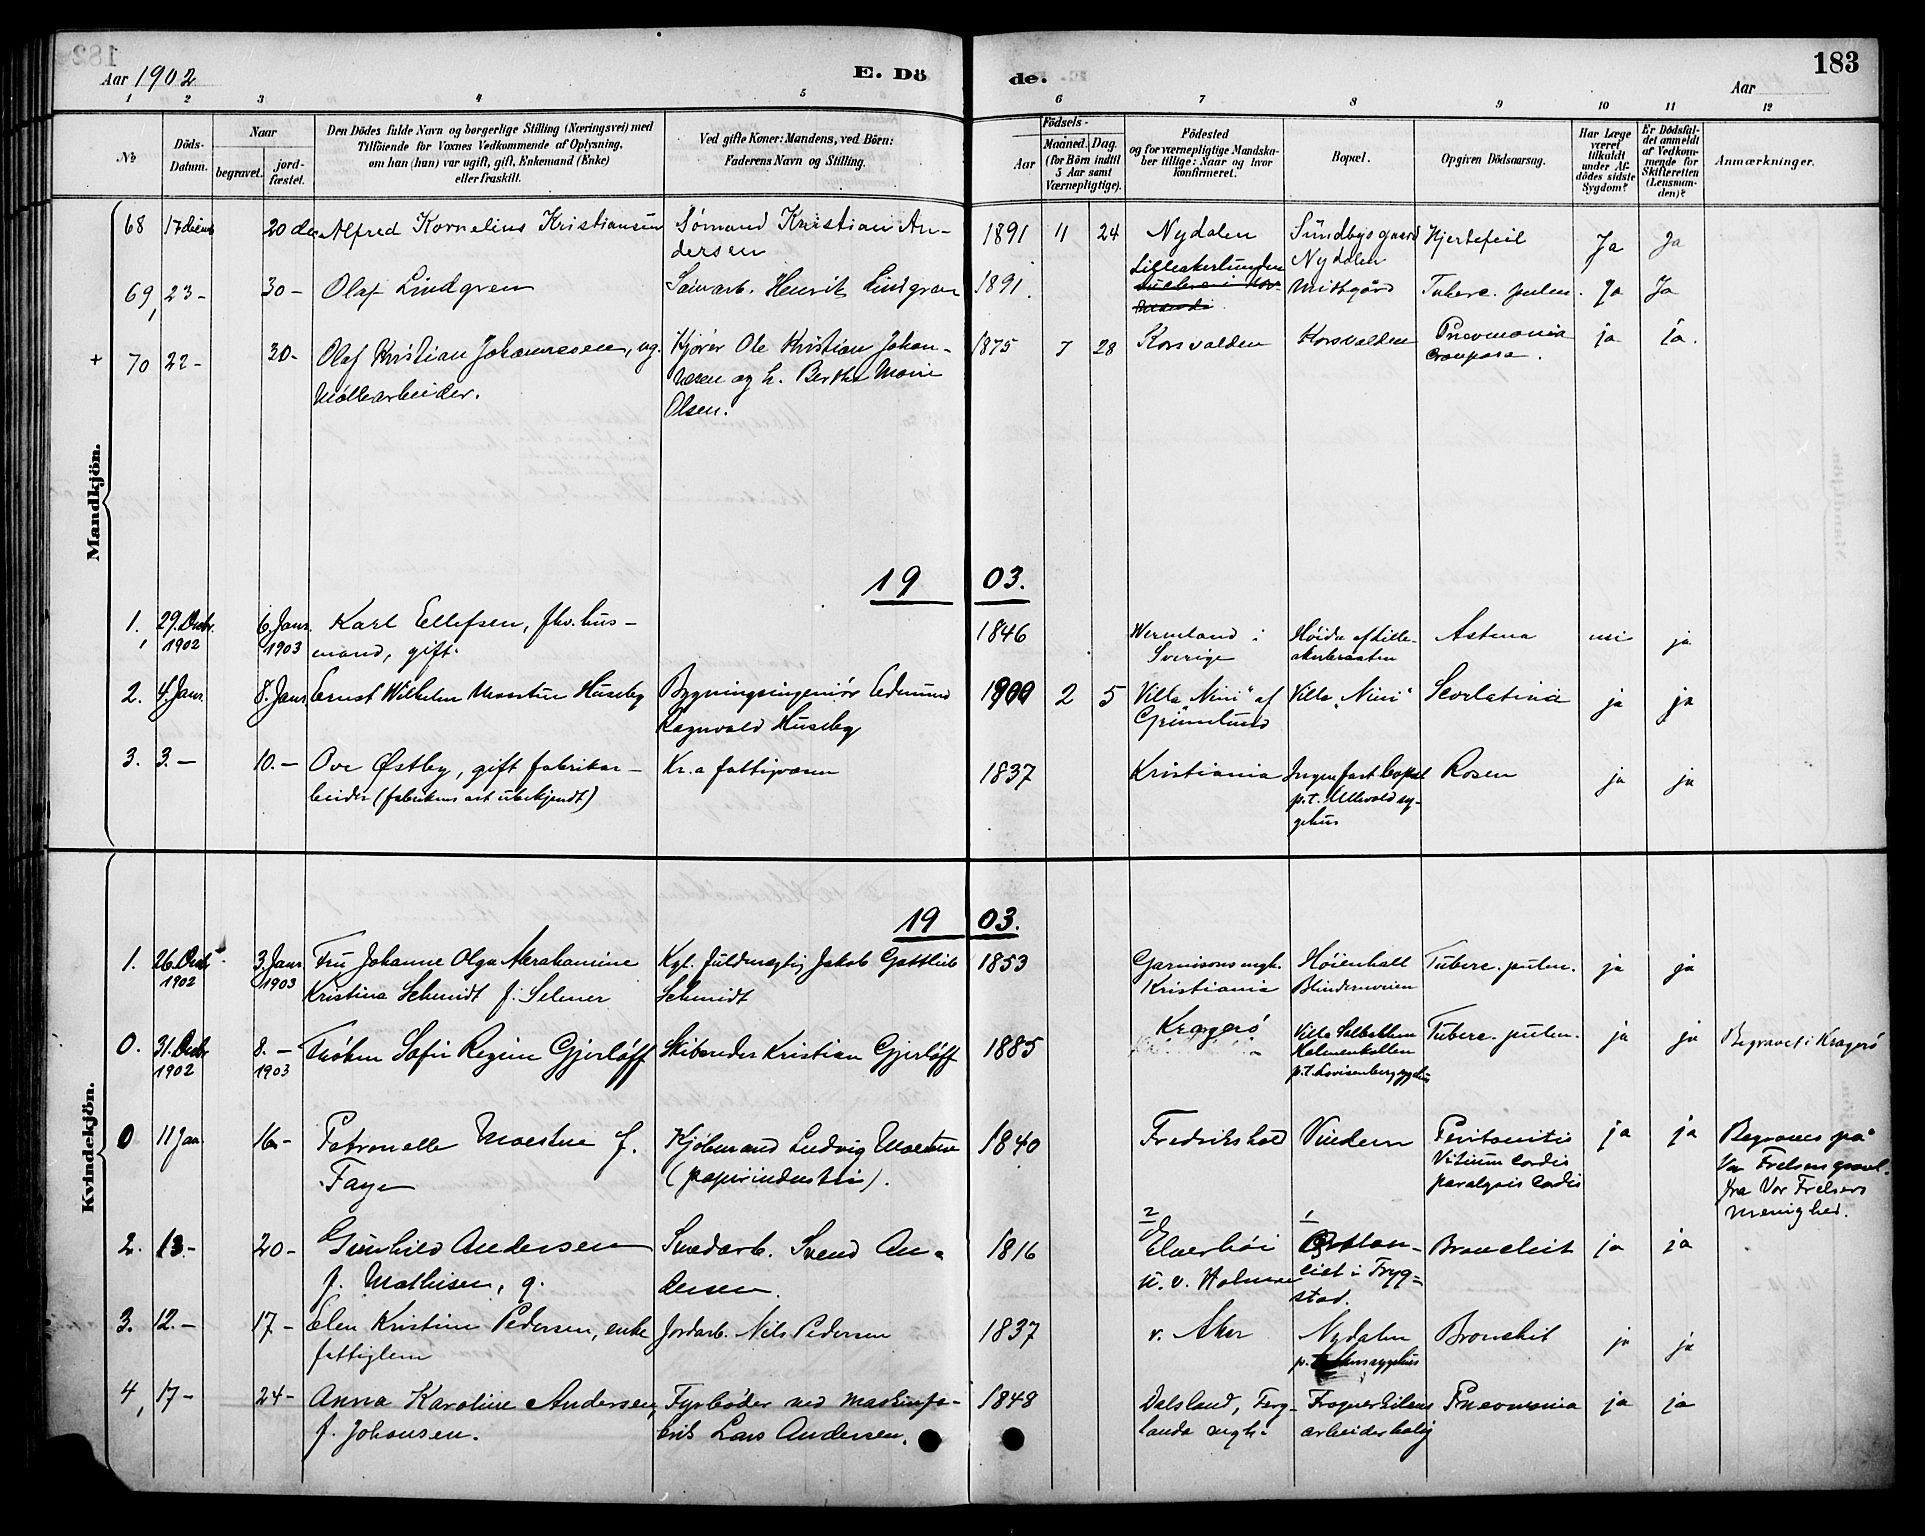 Aar 1902
E. Dö
de.
183
Aar
1 2 3 4 5 6 7 8 9 10 11 12
No
Döds-
Datum.
Naar
begravet.
jord-
fæstet.
Den Dödes fulde Navn og borgerlige Stilling (Næringsvei) med
Tilföiende for Voxnes Vedkommende af Oplysning,
om han (hun) var ugift, gift, Enkemand (Enke)
eller fraskilt.
Ved gifte Koner: Mandens, ved Börn:
Faderens Navn og Stilling.
Födsels-
Aar
Maaned. Dag.
(for Börn indtil
5 Aar samt
Værnepligtige).
Födested
og for værnepligtige Mandska-
ber tillige: Naar og hvor
konfirmeret.
Bopæl.
Opgiven Dödsaarsag.
Har Læge
været
tilkaldt
under Af-
dödes sidste
Sygdom?
Er Dödsfal-
det anmeldt
af Vedkom-
mende for
Skifteretten
(Lensman-
den)?
Anmærkninger.
Mandkjön.
68 17 decem 20 de Alfred Kornelius Kristiansen Sømand Kristian An-
dersen 1891 11 24 Nydalen Sundbys gaard
Nydalen Hjertefeil Ja Ja
69, 23 - 30 - Olaf Lindgren Henrik Lindgren 1891. Lilleakerlunden
Tuberc. pulm. Ja Ja
+ 70 22 - 30 - Olaf Kristian Johannesen, ug.
Møllearbeider. Kjører Ole Kristian Johan-
nesen og h. Berthe Marie
Olsen. 1875 7 28 Korsvolden Korsvolden Pneumonia
crouposa. ja ja.
19 03.
1. 29. Decbr.
1902 6. Janr.
1903 Karl Ellefsen, fhv. hus-
mand, gift. 1846 Wermland i
Sverige Høida af Lille-
akerbraaten Astma nei ja
2. 4. Janr. 8. Janr. Ernst Wilhelm Huseby Bygningsingeniør Edmund
Ragnvald Huseby 1900 2 5 Villa "Nini" af
Grimelund Villa "Nini" Scarlatina ja ja
3. 3. - 10. - Ove Østby, gift fabrikar-
beider (fabrikens art ubekjendt) Kr.a fattigvæsen 1837 Kristiania Ingen fast bopæl
p.t. Ullevold sy-
gehus Rosen ja ja
Kvindekjön.
19 03.
1. 26. Decbr.
1902 3. Janr.
1903 Fru Johanne Olga Abrahamine
Kristina Schmidt f. Selmer Kgl. fuldmægtig Jakob Gottlieb
Schmidt 1853 Garnisonsmgh.
Kristiania Høienhall
Blindernveien Tuberc. pulm. ja ja
0. 31. Decbr
1902 8. -
1903 Frøken Sofie Regine Gjerløff Skibsreder Kristian Gjerløff 1885 Kragerø Villa Solbakken
Holmenkollen
p.t. Lovisenberg sygehus Tuberc. pulm. ja ja Begravet i Kragerø
0 11 Jan 16 - Petronelle Moestue f.
Faye Kjøbmand Ludvig Moestue
(papirindustri). 1840 Fredrikshald Vindern Peritonitis
Vitium cordis
paralysis cordis ja ja Begraves på
Vor Frelsers gravl.
fra Vor Frelsers
menighed.
2. 13 - 20 - Gunhild Andersen
f. Mathisen, g. Smedarb. Svend An-
dersen. 1816 2 Elverhøi
u. v. Holmen 1
i Tryg-
stad. Bronchit ja ja
3. 12. - 17 - Elen Kristine Pedersen, enke
fattiglem Jordarb. Nils Pedersen 1837 v. Aker Nydalen
Bronchit ja ja
4, 17 - 24 - Anna Karoline Andersen,
f. Johansen. Fyrbøder ved maskinfa-
brik Lars Andersen. 1848 Dalsland, Fær-
landa mgh. Frognerkilens
arbeiderbolig Pneumonia ja ja